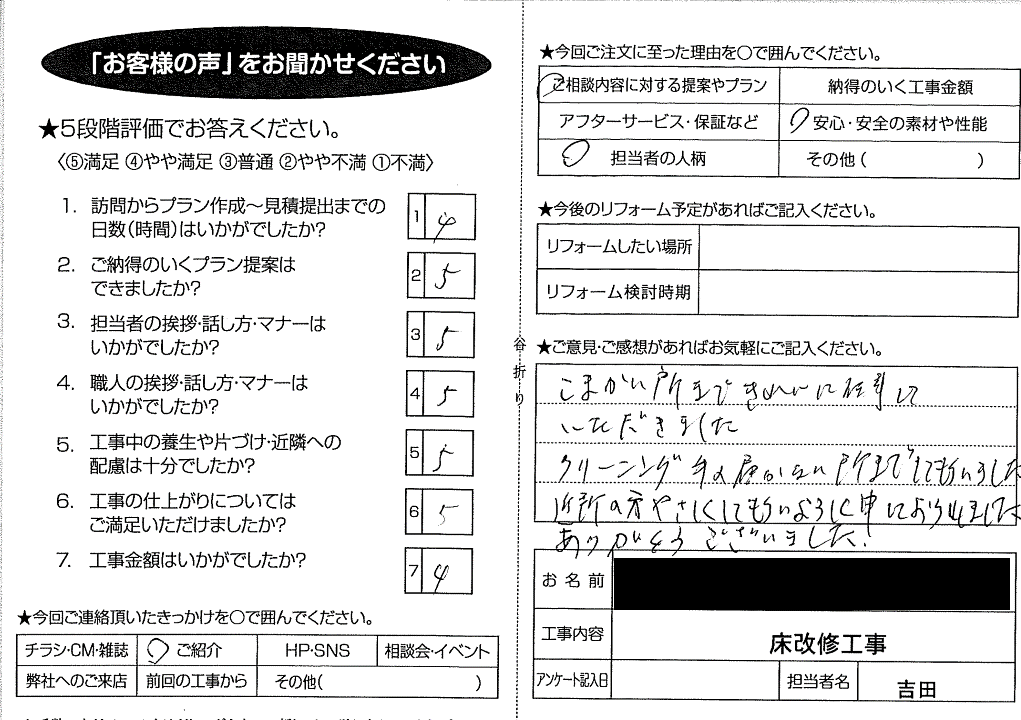 「お客様の声」をお聞かせください
★5段階評価でお答えください。
〈⑤満足 ④やや満足 ③普通 ②やや不満 ①不満〉
1. 訪問からプラン作成～見積提出までの
日数(時間)はいかがでしたか?
1 4
2. ご納得のいくプラン提案は
できましたか?
2 5
3. 担当者の挨拶・話し方・マナーは
いかがでしたか?
3 5
4. 職人の挨拶・話し方・マナーは
いかがでしたか?
4 5
5. 工事中の養生や片づけ・近隣への
配慮は十分でしたか?
5 5
6. 工事の仕上がりについては
ご満足いただけましたか?
6 5
7. 工事金額はいかがでしたか?
7 4
★今回ご連絡頂いたきっかけを〇で囲んでください。
チラシ・CM・雑誌 ご紹介 HP・SNS 相談会・イベント
弊社へのご来店 前回の工事から その他( )
谷折り
★今回ご注文に至った理由を〇で囲んでください。
ご相談内容に対する提案やプラン 納得のいく工事金額
アフターサービス・保証など 安心・安全の素材や性能
担当者の人柄 その他( )
★今後のリフォーム予定があればご記入ください。
リフォームしたい場所
リフォーム検討時期
★ご意見・ご感想があればお気軽にご記入ください。
こまかい所まできれいに仕事して
いただきました
クリーニング 手の届かない所までしてもらいました
近所の方やさしくしてもらいように申しておりました
ありがとうございました!
お名前
工事内容 床改修工事
アンケート記入日 担当者名 吉田